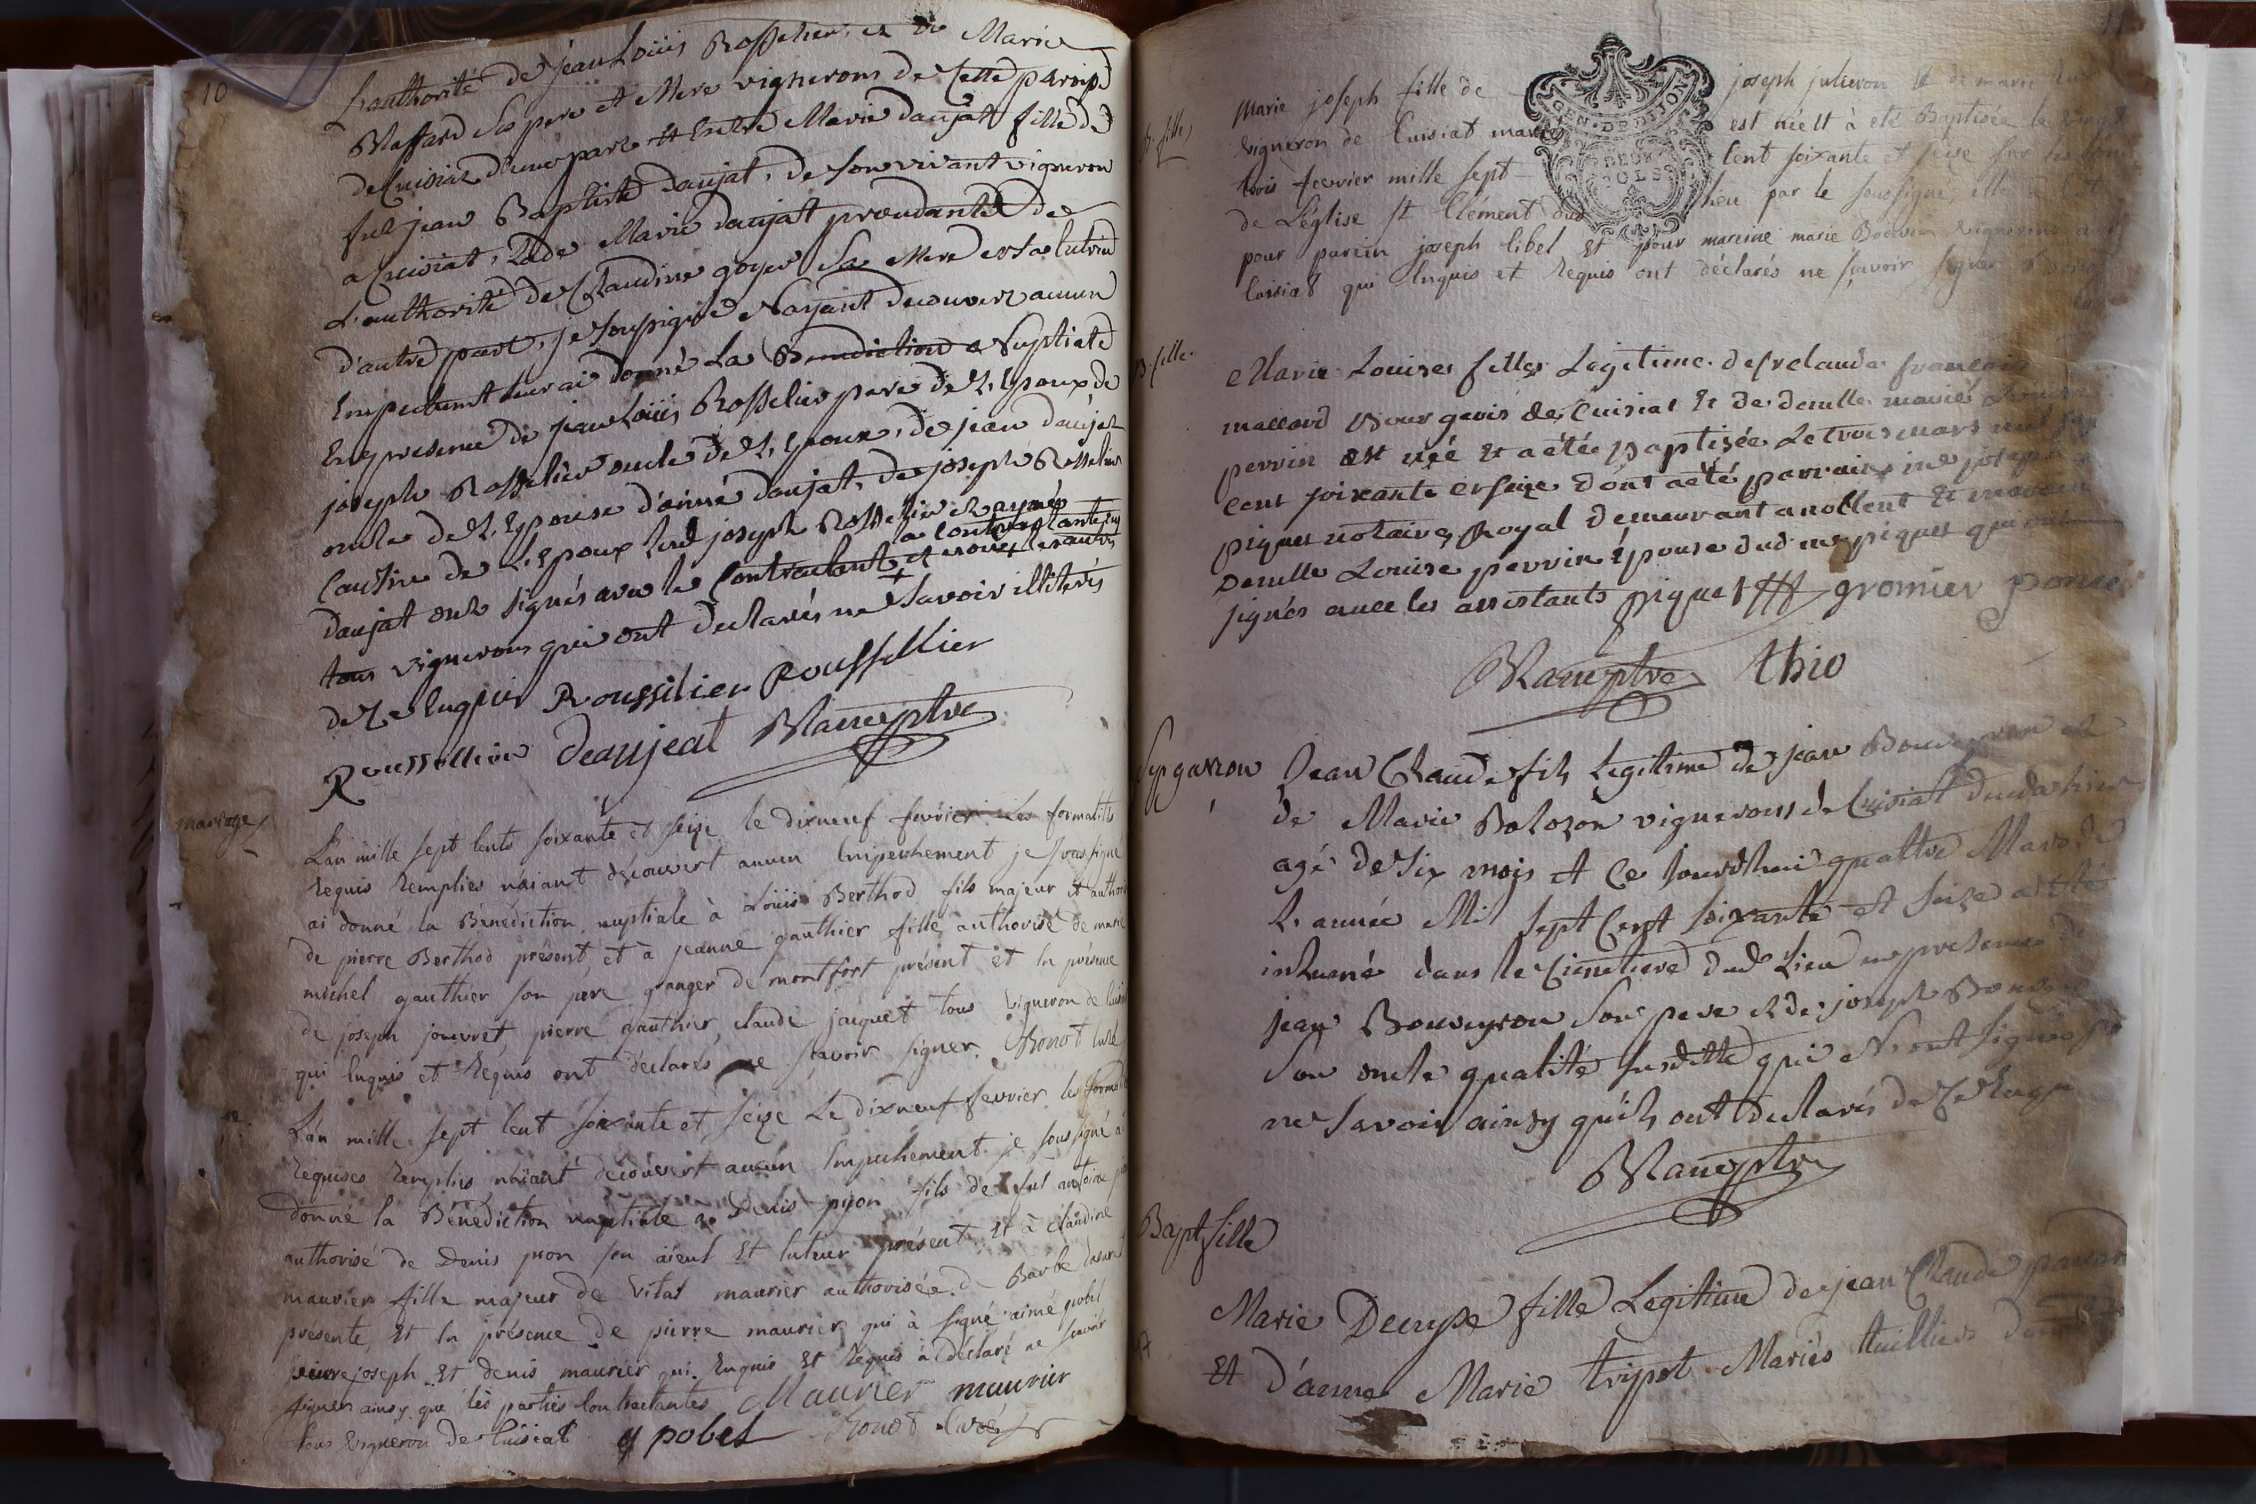 10
L'authorité de jean Loüis Rosselier et de Marie
Maffard Ses pere et Mere vignerons de Cette paroisse
de Cuisiat d'une part et Entre Marie daujat fille de
fut jean Baptiste daujat, de son vivant vigneron
a Cuisiat, et de Marie daujat procedante de
L'authorité de Claudine goyer Sa Mere et Sa tutrice
d'autre part, je soussigné N'ayant decouvert aucun
Empechement leur ai donné La Benediction Nuptiale
En presence de jean Loüis Rosselier pere de L'Epoux de
joseph Rosselier oncle de L'Epoux, de jean daujat
oncle de L'Epouse d'aimé daujat, de joseph Rosselier
Cousin de L'Epoux led joseph Rosselier et aymé
daujat ont signés avec le Contractant et non les autres
a contractante
tous vignerons qui ont declarés ne Savoir illiterés
de Ce Enquis Roussilier Rousselier
Rousselier deaujeat Mauceptre
mariage
L'an mille sept cents soixante et seize le dixneuf fevrier les formalités
requis remplies n'aiant découvert aucun Empechement je soussigné
ai donné la Bénédiction nuptiale à Loüis Berthod fils majeur et authorisé
de pierre Berthod présent, et à jeanne gauthier fille authorisé de
michel gauthier son pere granger de montfort présent et En présence
de joseph jouvret, pierre gauthier, claude jacquet tous vigneron de Cuisiat
qui Enquis et Requis ont déclarés ne sçavoir signer. Thonot Curé
L'an mille sept Cent soixante et seize Le dixneuf fevrier les formalités
requises remplies n'aiant découvert aucun Empechement je soussigné ai
donné la Bénédiction nuptiale a Denis pyon fils de fut antoine
authorisé de Denis pion son aieul Et tuteur présent, Et à claudine
maurier fille majeur de Vital maurier authorisée de Barbe
présente, Et En présence de pierre maurier qui à signé aimé pobel
joseph Et Denis maurier qui Enquis Et Requis à déclaré ne scavoir
signer ainsy que les parties Contractantes Maurier maurier
tous vigneron de Cuisiat pobel Thonot Curé
11
B. fille
Marie joseph fille de joseph julieron Et de marie
vigneron de Cuisiat mariés est née Et à eté Baptisée le vingt
trois fevrier mille sept Cent soixante et seize sur les fonts
GEN. DE DIJON
DEUX SOLS
de L'église St Clément dud lieu par le soussigné,
pour parein joseph libel Et pour mareine marie
Cuisiat qui Enquis et Requis ont déclarés ne sçavoir signer
B. fille
Marie Louise fille Legitime de sr claude françois
maccard Bourgeois de Cuisiat Et de demlle mariés Louise
perrin Est née Et a été Baptisée Le trois mars mil sept
cent soixante et seize dont a été parrain me joseph
piquet notaire Royal demeurant a nollent Et maraine
Demlle Louise perrin Epouse dud me piquet qui ont
signés avec les assistants piquet gromier
Mauceptre thio
Sep garzon
Jean Claude fils Legitime de jean Bouveyron et
de Marie Bolozon vignerons de Cuisiat
agé de six mois et Ce jourdhui quattre Mars de
L'année Mil sept Cent soixante et Seize a été
inhumé dans le Cimetiere dud Lieu en presence de
jean Bouveyron Son pere et de joseph
Son oncle qualité Susditte qui N'ont signés
ne Savoir ainsy qu'ils ont declarés de Ce Enquis
Mauceptre
Bapt fille
Marie Denyse fille Legitime de jean Claude
Et d'anne Marie tripot Mariés tuilliers